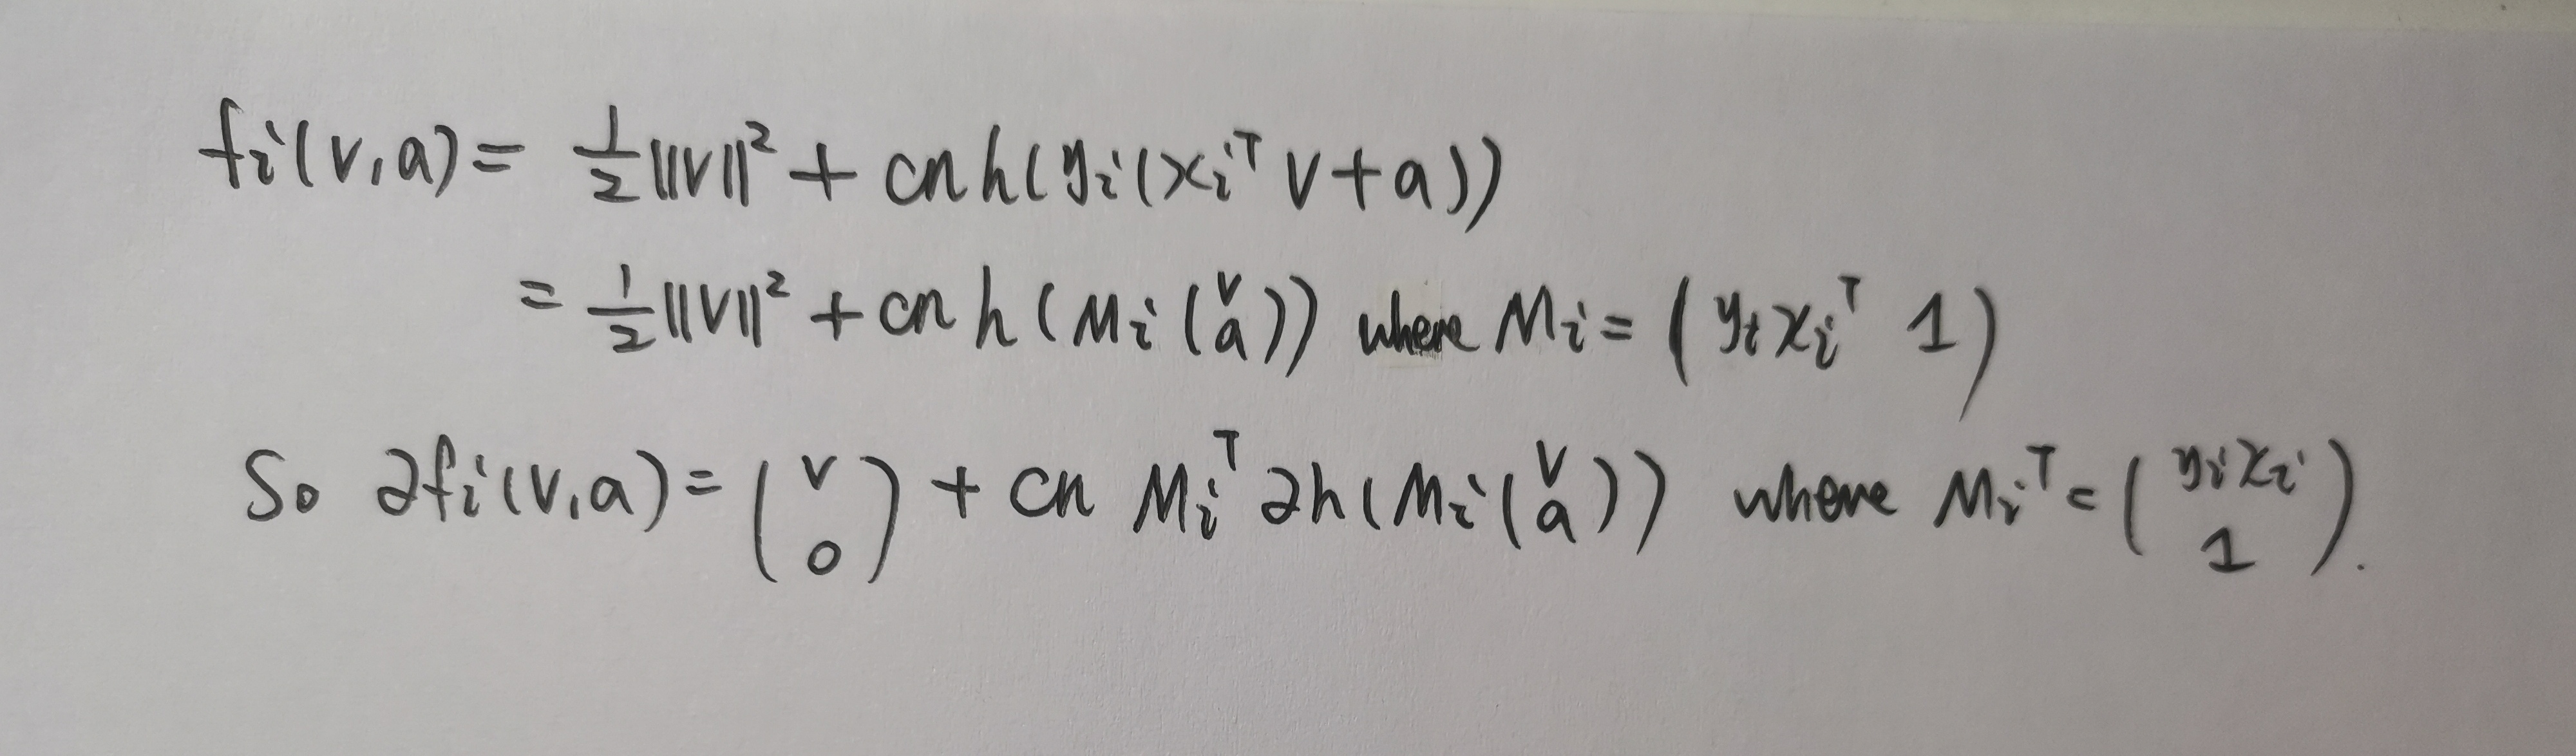 fᵢ(v,a) = ½‖v‖² + cn h(yᵢ(xᵢᵀ v + a))
= ½‖v‖² + cn h(Mᵢ(v a)) where Mᵢ = (yᵢxᵢᵀ 1)
So ∂fᵢ(v,a) = (v 0) + cn Mᵢᵀ ∂h(Mᵢ(v a)) where Mᵢᵀ = (yᵢxᵢ 1).